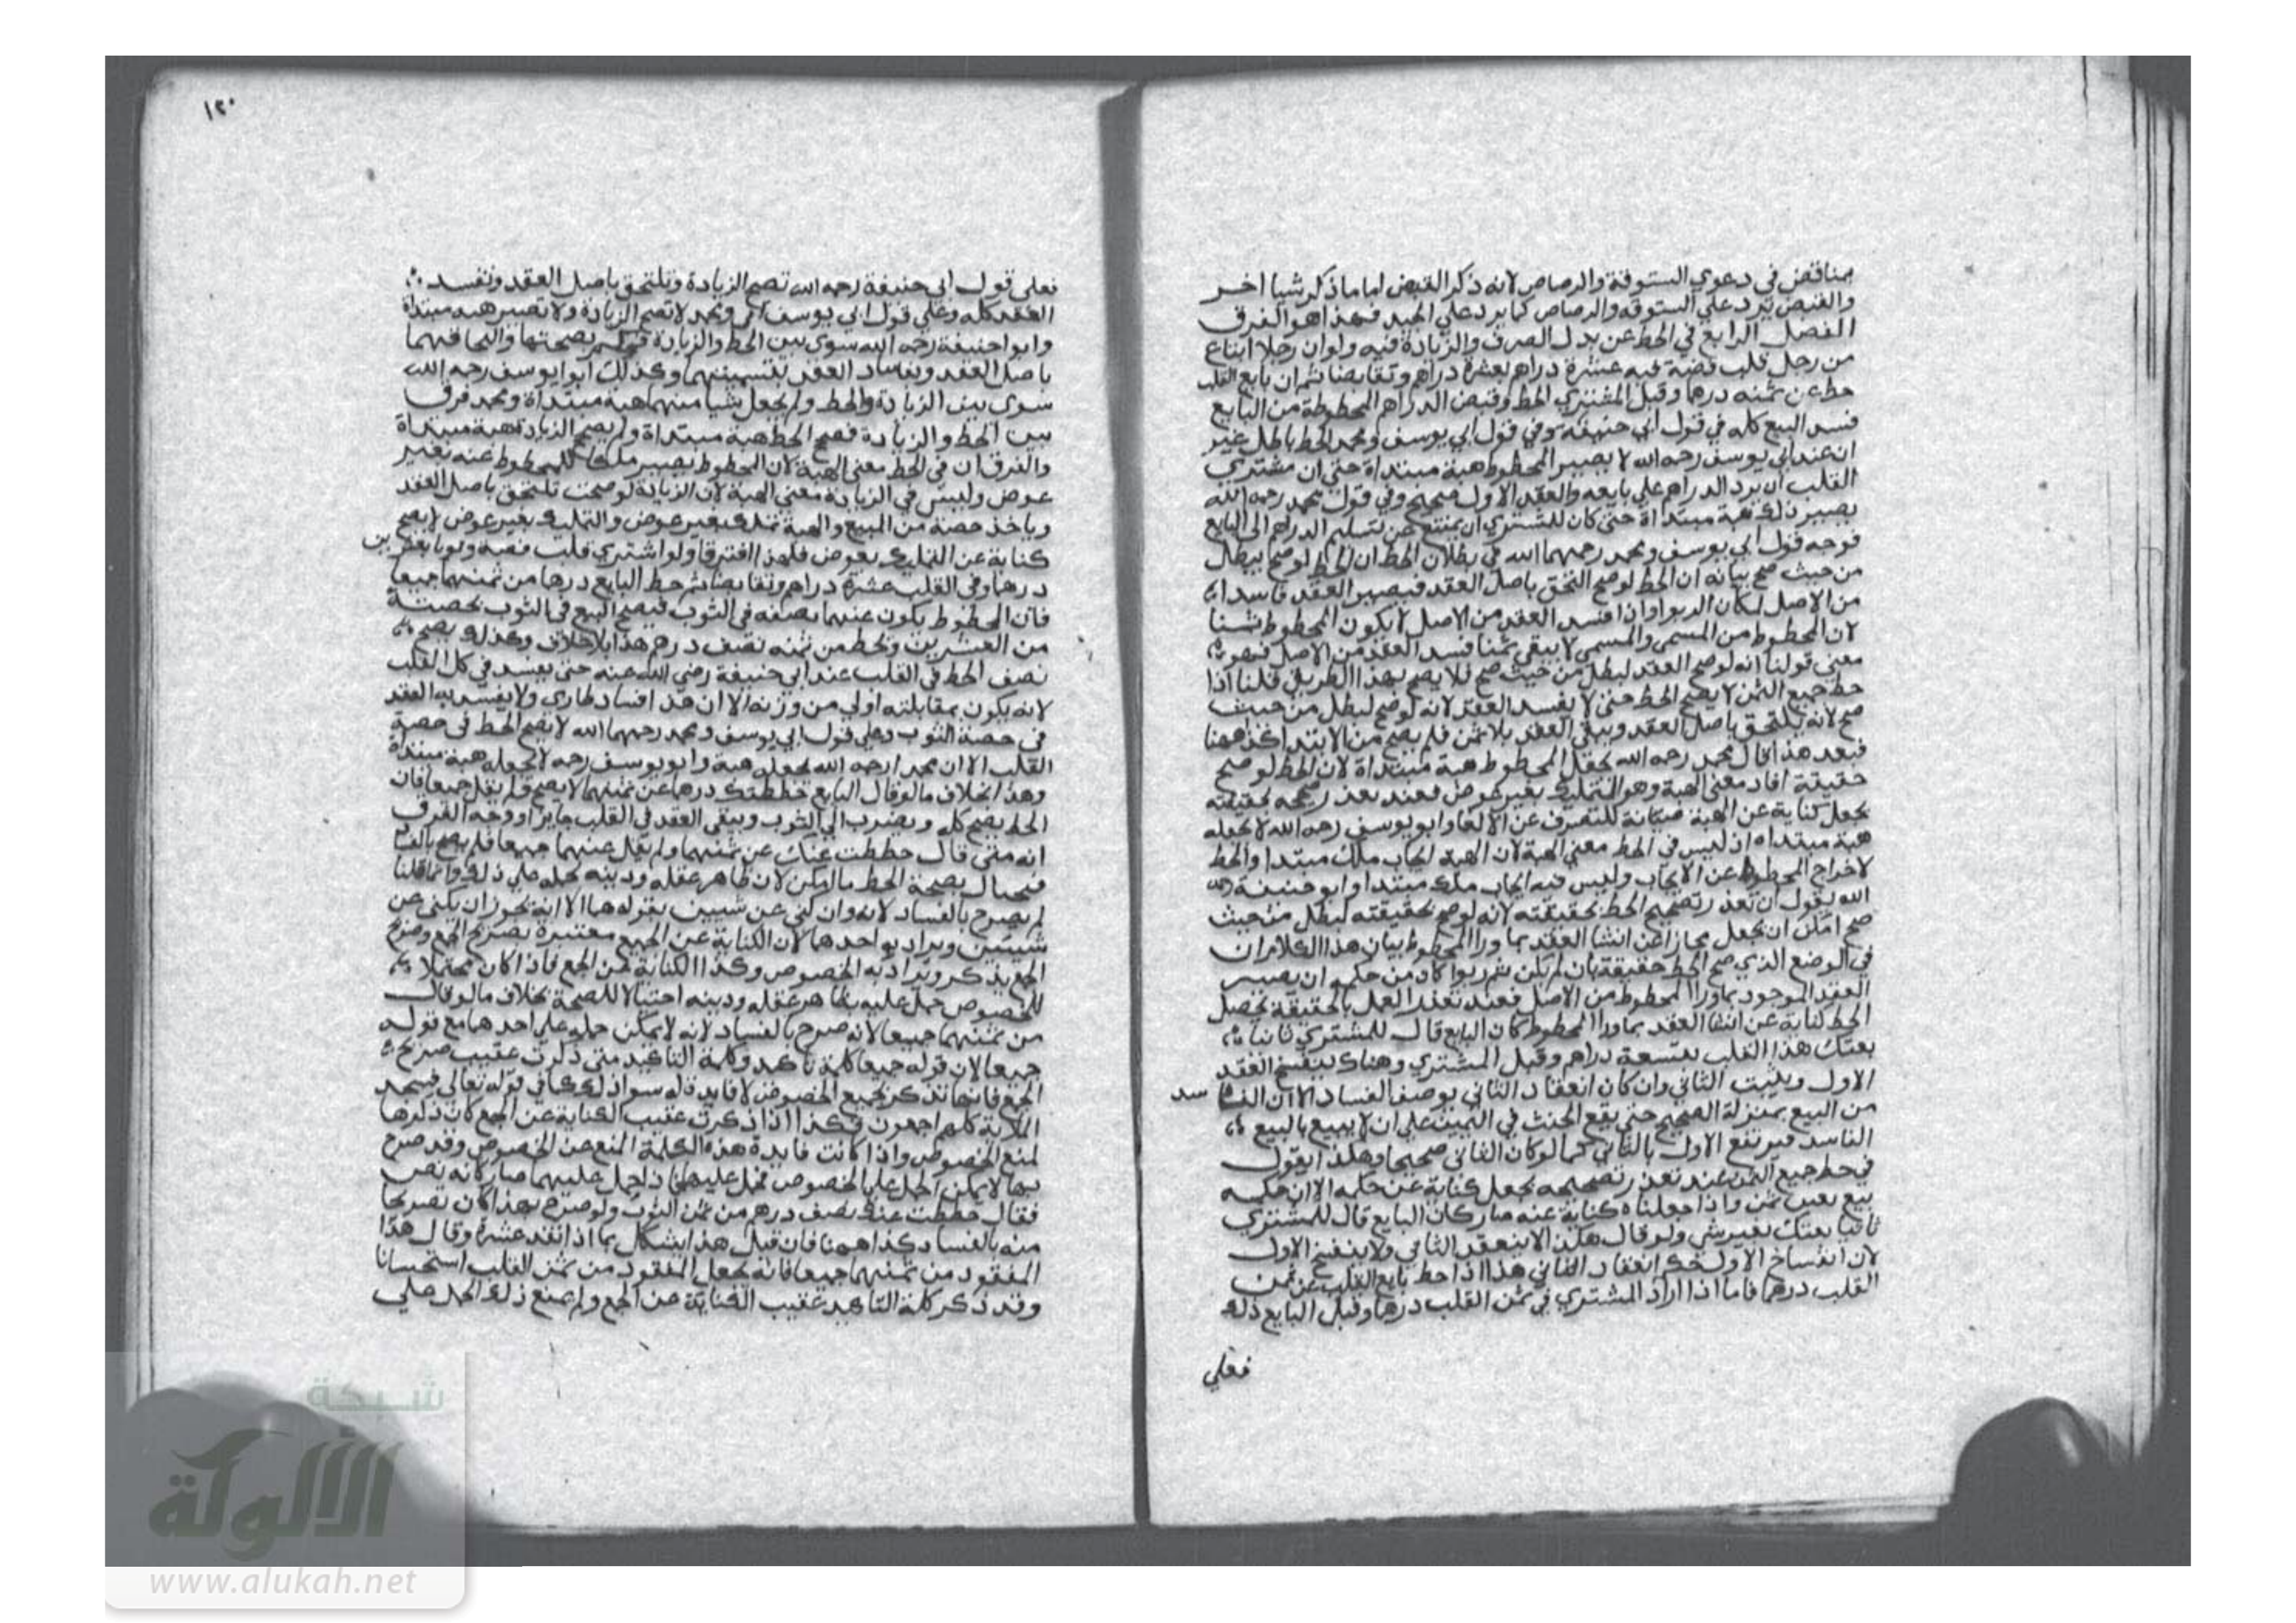 بمناقض في دعوي الستوقة والرصاص لانه ذكر القبض اما ما ذكر شيا اخر
والقبض يرد علي الستوقه والرصاص كما يرد علي الجيد فهذا هو الفرق
الفصل الرابع في الحط عن بدل الصرف والزيادة فيه ولو ان رجلا ابتاع
من رجل قلب فضة فيه عشرة دراهم بعشرة دراهم وتقابضا ثم ان بايع القلب
حط عن ثمنه درهما وقبل المشتري الحط وقبض الدراهم المحطوطة من البايع
فسد البيع كله في قول ابي حنيفة وفي قول ابي يوسف ومحمد الحط باطل غير
ان عند ابي يوسف رحمه الله لا يصير المحطوط هبة مبتداة حتي ان مشتري
القلب ان يرد الدراهم علي بايعه والعقد الاول صحيح وفي قول محمد رحمه الله
يصير ذلك هبة مبتداة حتي كان للمشتري ان يمتنع عن تسليم الدرهم الي البايع
فوجه قول ابي يوسف ومحمد رحمهما الله في بطلان الحط ان الحط لو صح يبطل
من حيث صح بيانه ان الحط لو صح التحق باصل العقد فيصير العقد فاسدا
من الاصل لمكان الربوا واذا فسد العقد من الاصل لا يكون المحطوط ثمنا
لان المحطوط من المسمي والمسمي لا يبقي ثمنا فسد العقد من الاصل فهو
معني قولنا انه لو صح العقد لبطل من حيث صح فلا يصح بهذا الطريق قلنا اذا
حط جميع الثمن لا يصح الحط حتي لا يفسد العقد لانه لو صح لبطل من حيث
صح لانه يلتحق باصل العقد ويبقي العقد بلا ثمن فلم يصح من الابتدا كذا ههنا
فبعد هذا قال محمد رحمه الله يجعل المحطوط هبة مبتداة لان الحط لو صح
حقيقة افاد معني الهبة وهو التمليك بغير عوض فعند تعذر تصحيحه بحقيقته
يجعل كناية عن الهبة صيانة للتصرف عن الالغا وابو يوسف رحمه الله لا يجعله
هبة مبتداه اذ ليس في الحط معني الهبة لان الهبة ايجاب ملك مبتدا والحط
لاخراج المحطوط عن الايجاب وليس فيه ايجاب ملك مبتدا وابو حنيفة رحمه
الله يقول ان تعذر تصحيح الحط بحقيقته لانه لو صح بحقيقته لبطل من حيث
صح امكن ان يجعل مجازا عن انشا العقد بما ورا المحطوط بيان هذا الكلام ان
في الموضع الذي صح الحط حقيقة بان لم يكن ثم ربوا كان من حكمه ان يصير
العقد الموجود بما ورا المحطوط من الاصل فعند تعذر العمل بالحقيقة يحصل
الحط كناية عن انشا العقد بما ورا المحطوط كان البايع قال للمشتري ثانيا
بعتك هذا القلب بتسعة دراهم وقبل المشتري وهناك ينفسخ العقد
الاول ويثبت الثاني وان كان انعقاد الثاني بوصف الفساد الا ان الفاسد
من البيع بمنزلة الصحيح حتي يقع الحنث في اليمين علي ان لا يبيع بالبيع
الفاسد فيرتفع الاول بالثاني كما لو كان الثاني صحيحا وهكذا يقول
في حط جميع الثمن عند تعذر تصحيحه يجعل كناية عن حكمه الا ان حكمه
بيع بغير ثمن واذا جعلناه كناية عنه صار كان البايع قال للمشتري
ثانيا بعتك بغير شي ولو قال هكذا لا ينعقد الثاني ولا ينفسخ الاول
لان انفساخ الاول حكم انعقاد الثاني هذا اذا حط بايع القلب عن ثمن
القلب درهما فاما اذا زاد المشتري في ثمن القلب درهما وقبل البايع ذلك
فعلي
١٢٠
فعلي قول ابي حنيفة رحمه الله تصح الزيادة وتلتحق باصل العقد وتفسد
العقد كله وعلي قول ابي يوسف ومحمد لا تصح الزيادة ولا تصير هبة مبتداة
وابو احنيفة رحمه الله سوي بين الحط والزيادة بصحتها والحاقهما
باصل العقد وبفساد العقد بتسميتهما وكذلك ابوا يوسف رحمه الله
سوي بين الزيادة والحط ولم يجعل شيا منهما هبة مبتداة ومحمد فرق
بين الحط والزيادة فصح الحط هبة مبتداة ولم يصح الزيادة هبة مبتداة
والفرق ان في الحط معني الهبة لان المحطوط يصير ملكا للمحطوط عنه بغير
عوض وليس في الزيادة معني الهبة لان الزيادة لو صحت تلتحق باصل العقد
وياخذ حصة من المبيع والهبة تمليك بغير عوض والتمليك بغير عوض لا يصح
كناية عن التمليك بعوض فلهذا افترقا ولو اشتري قلب فضة وثوبا بعشرين
درهما وفي القلب عشرة دراهم وتقابضا ثم حط البايع درهما من ثمنهما جميعا
فان المحطوط يكون عنهما نصفه في الثوب فيصح البيع في الثوب بحصته
من العشرين ويحط من ثمنه نصف درهم هذا بلا خلاف وكذلك يصح
نصف الحط في القلب عند ابي حنيفة رضي الله عنه حتي يفسد في كل القلب
لانه يكون بمقابلته اولي من وزنه الا ان هذا فساد طاري ولا يفسد به العقد
في حصة الثوب وعلي قول ابي يوسف ومحمد رحمهما الله لا يصح الحط في حصة
القلب الا ان محمدا رحمه الله يجعله هبة وابو يوسف رحمه لا يجعله هبة مبتداة
وهذا بخلاف ما لو قال البايع حططتك درهما عن ثمنهما لا يصح ولم يقل جميعا فان
الحط يصح كله ويضرب الي الثوب ويبقي العقد في القلب جايزا ووجه الفرق
انه متي قال حططت عنك عن ثمنهما ولم يقل عنهما جميعا فلم يصح بالفسا
فيحتال بصحة الحط ما امكن لان ظاهر عقله ودينه يحمله علي ذلك وانما قلنا
لم يصرح بالفساد لانه وان كني عن شيين بقوله هما الا انه يجوز ان يكني عن
شيين ويراد به احدهما لان الكناية عن الجميع معتبرة بصريح الجمع وصريح
الجمع يذكر ويراد به الخصوص وكذا الكناية عن الجمع فاذا كان محتملا
للخصوص حمل عليه بظاهر عقله ودينه احتيالا للصحة بخلاف ما لو قال
من ثمنهما جميعا لانه صرح بالفساد لانه لا يمكن حمله علي احدهما مع قوله
جميعا لان قوله جميعا كلمة تاكيد وكلمة التاكيد متي ذكرت عقيب صريح
الجمع فانما تذكر لجميع الخصوص لا فايدة له سوا ذلك كما في قوله تعالي فسجد
الملاية كلهم اجمعون فكذا اذا ذكرت عقيب الكناية عن الجمع كان ذكرها
لمنع الخصوص واذا كانت فايدة هذه الكلمة المنع عن الخصوص وقد صرح
بها لا يمكن الحمل علي الخصوص فحمل عليهما فاذا حمل عليهما صار كانه نص
فقال حططت عنك نصف درهم من ثمن الثوب ولو صرح بهذا كان تصريحا
منه بالفساد كذا ههنا فان قيل هذا يشكل بما اذا نقد عشرة وقال هذا
المنقود من ثمنهما جميعا فانه يجعل المنقود من ثمن القلب استحسانا
وقد ذكر كلمة التاكيد عقيب الكناية عن الجمع ولم يمنع ذلك الحمل علي
شبكة
الألوكة
www.alukah.net